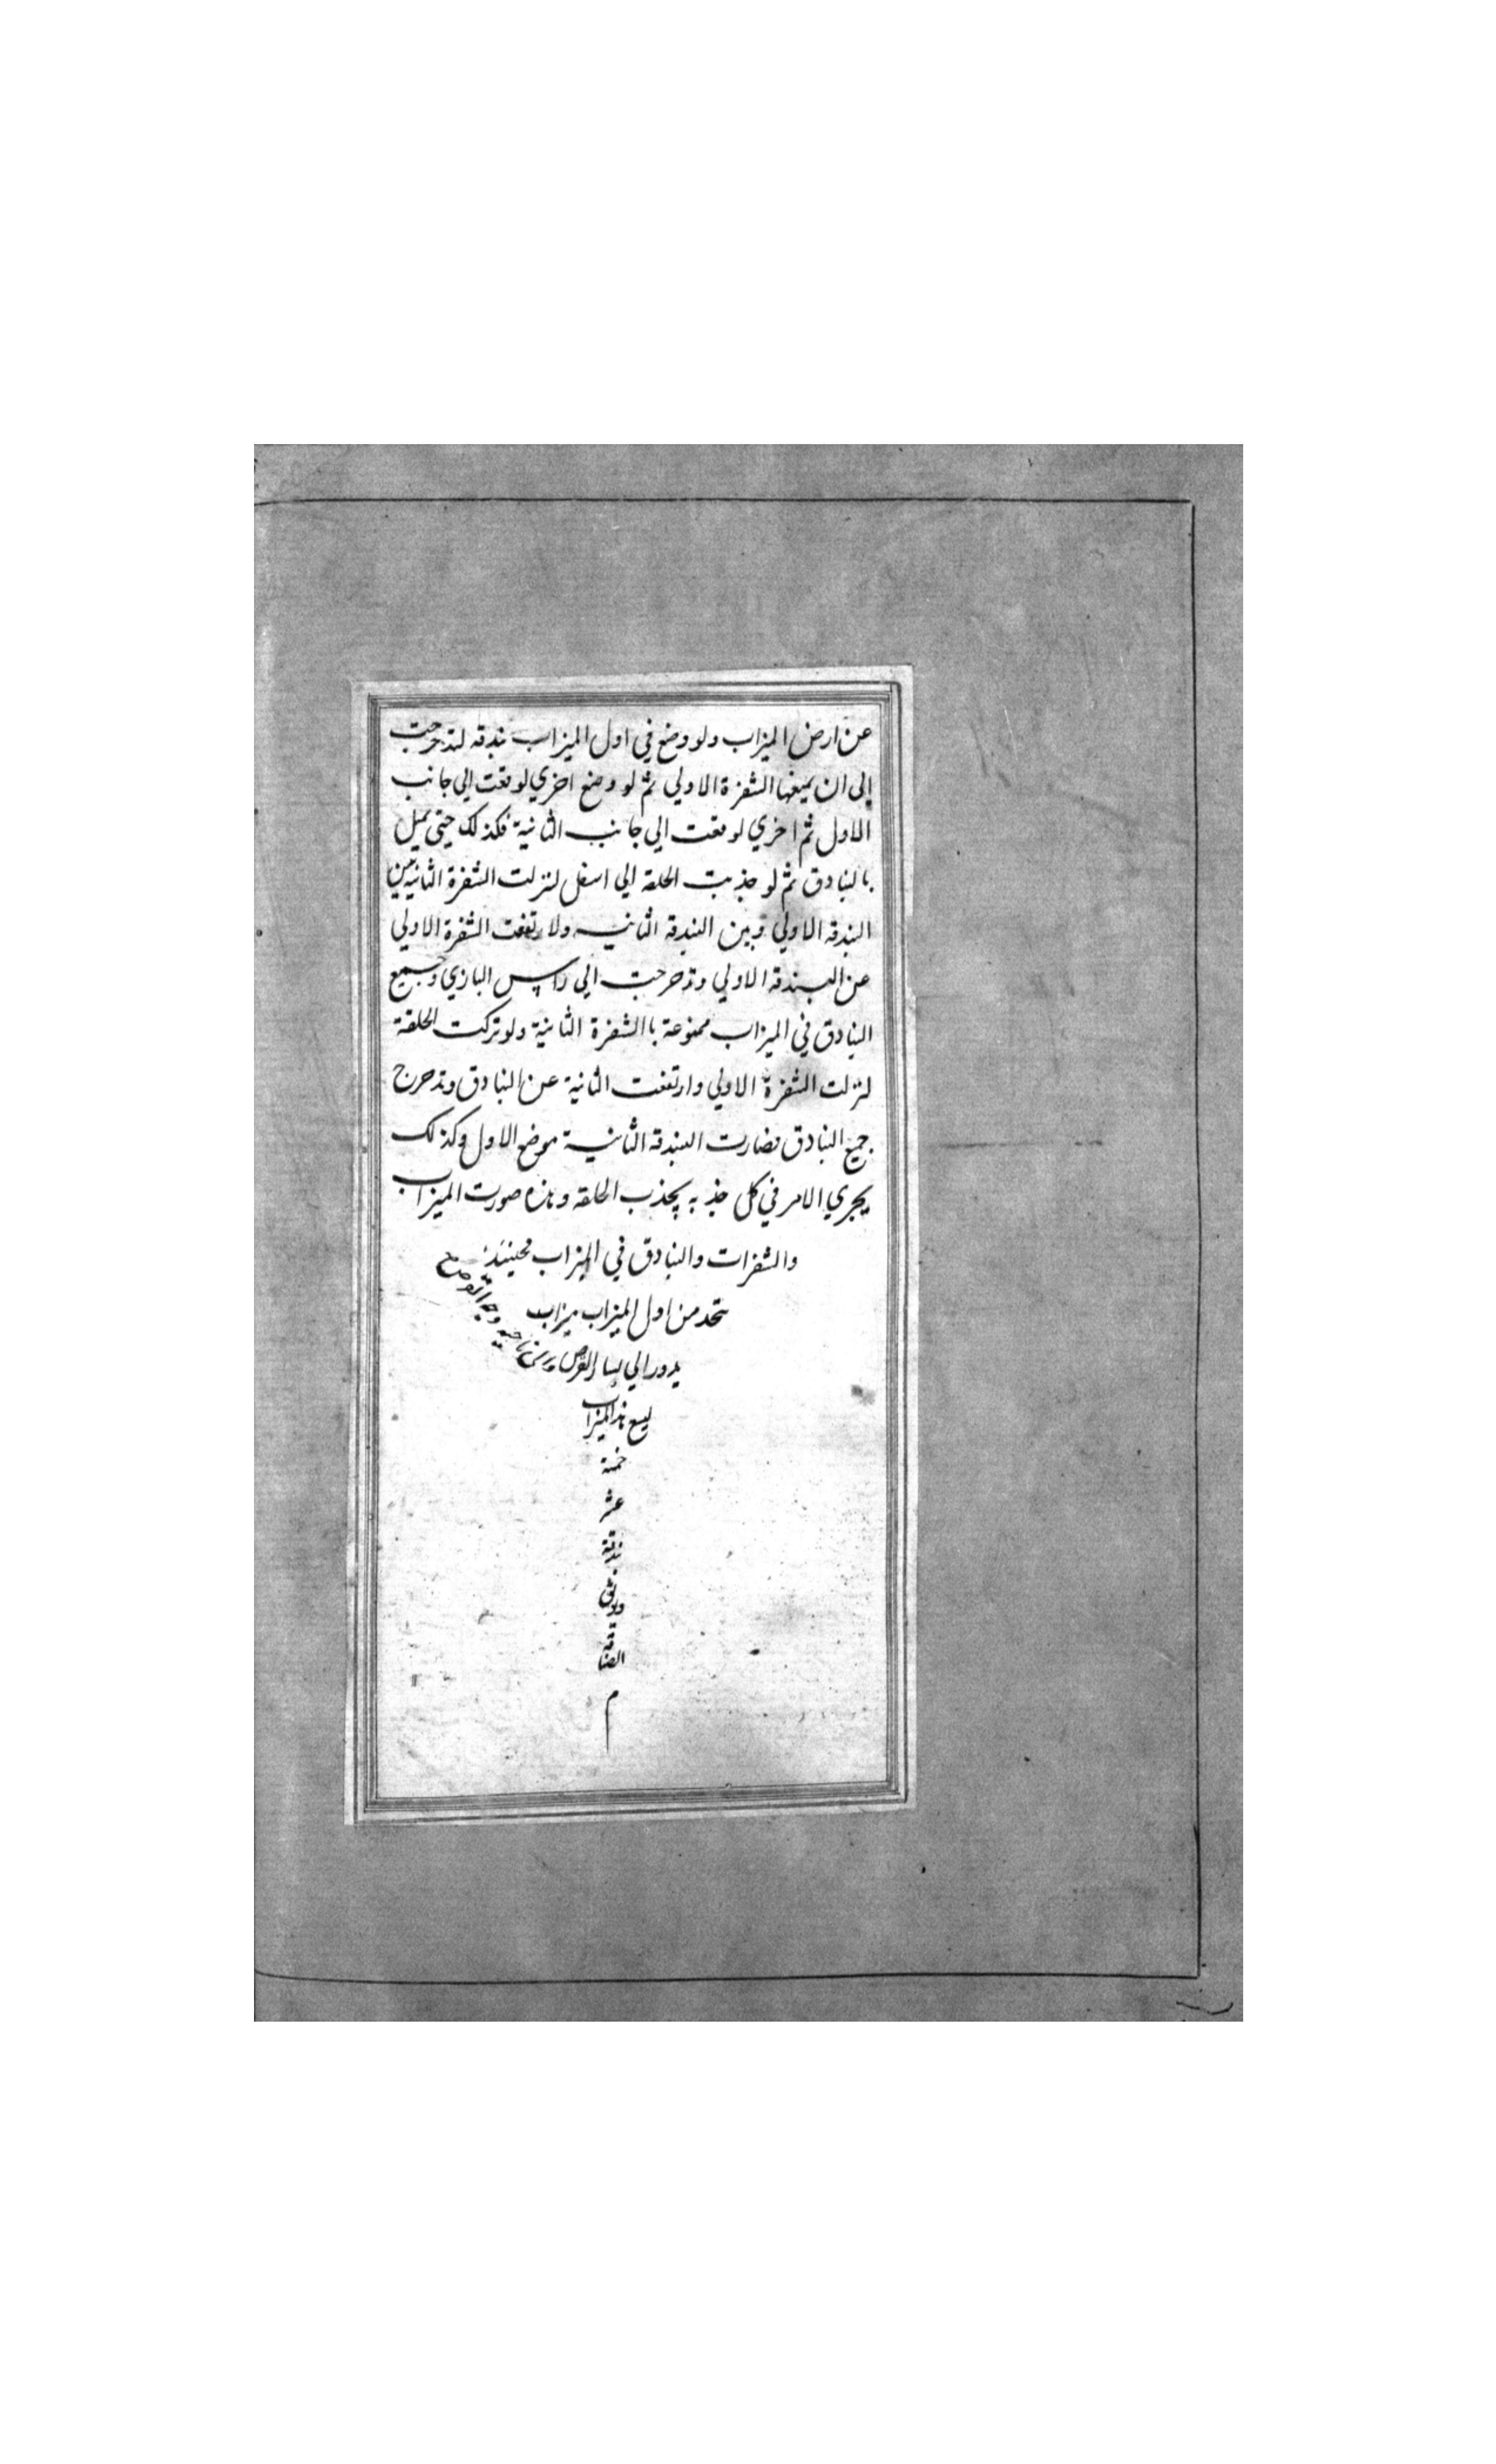 عن ارض الميزاب ولو وضع في اول الميزاب بندقه لتدحرجت
إلى ان يميغها الشفرة الاولي ثم لو وضع اخري لوقعت الي جانب
الاول ثم اخري لوقعت الي جانب الثانية فكذلك حتى يميل
بالبنادق ثم لو جذبت الحلقه الي اسفل لنزلت الشفرة الثانية بين
البندقه الاولي وبين البندقه الثانيه ولارتفعت الشفرة الاولي
عن البندقه الاولي وتدحرجت الي راس البازي وجميع
البنادق في الميزاب ممنوعة باالشفرة الثانية ولو تركت الحلقة
لنزلت الشفرة الاولي وارتفعت الثانية عن البنادق وتدحرج
جميع البنادق فصارت البندقه الثانية موضع الاول وكذلك
يجري الامر في كل جذبه بجذب الحلقه وهذه صورت الميزاب
والشفرات والبنادق في الميزاب فحينئذ
يتحد من اول الميزاب ميزاب
يدور الي يسار القرص من ناحيه وجه القوصع
يسع هذا الميزاب
خمسة
عشر
بندقة
ويوثق
الصناعه
م